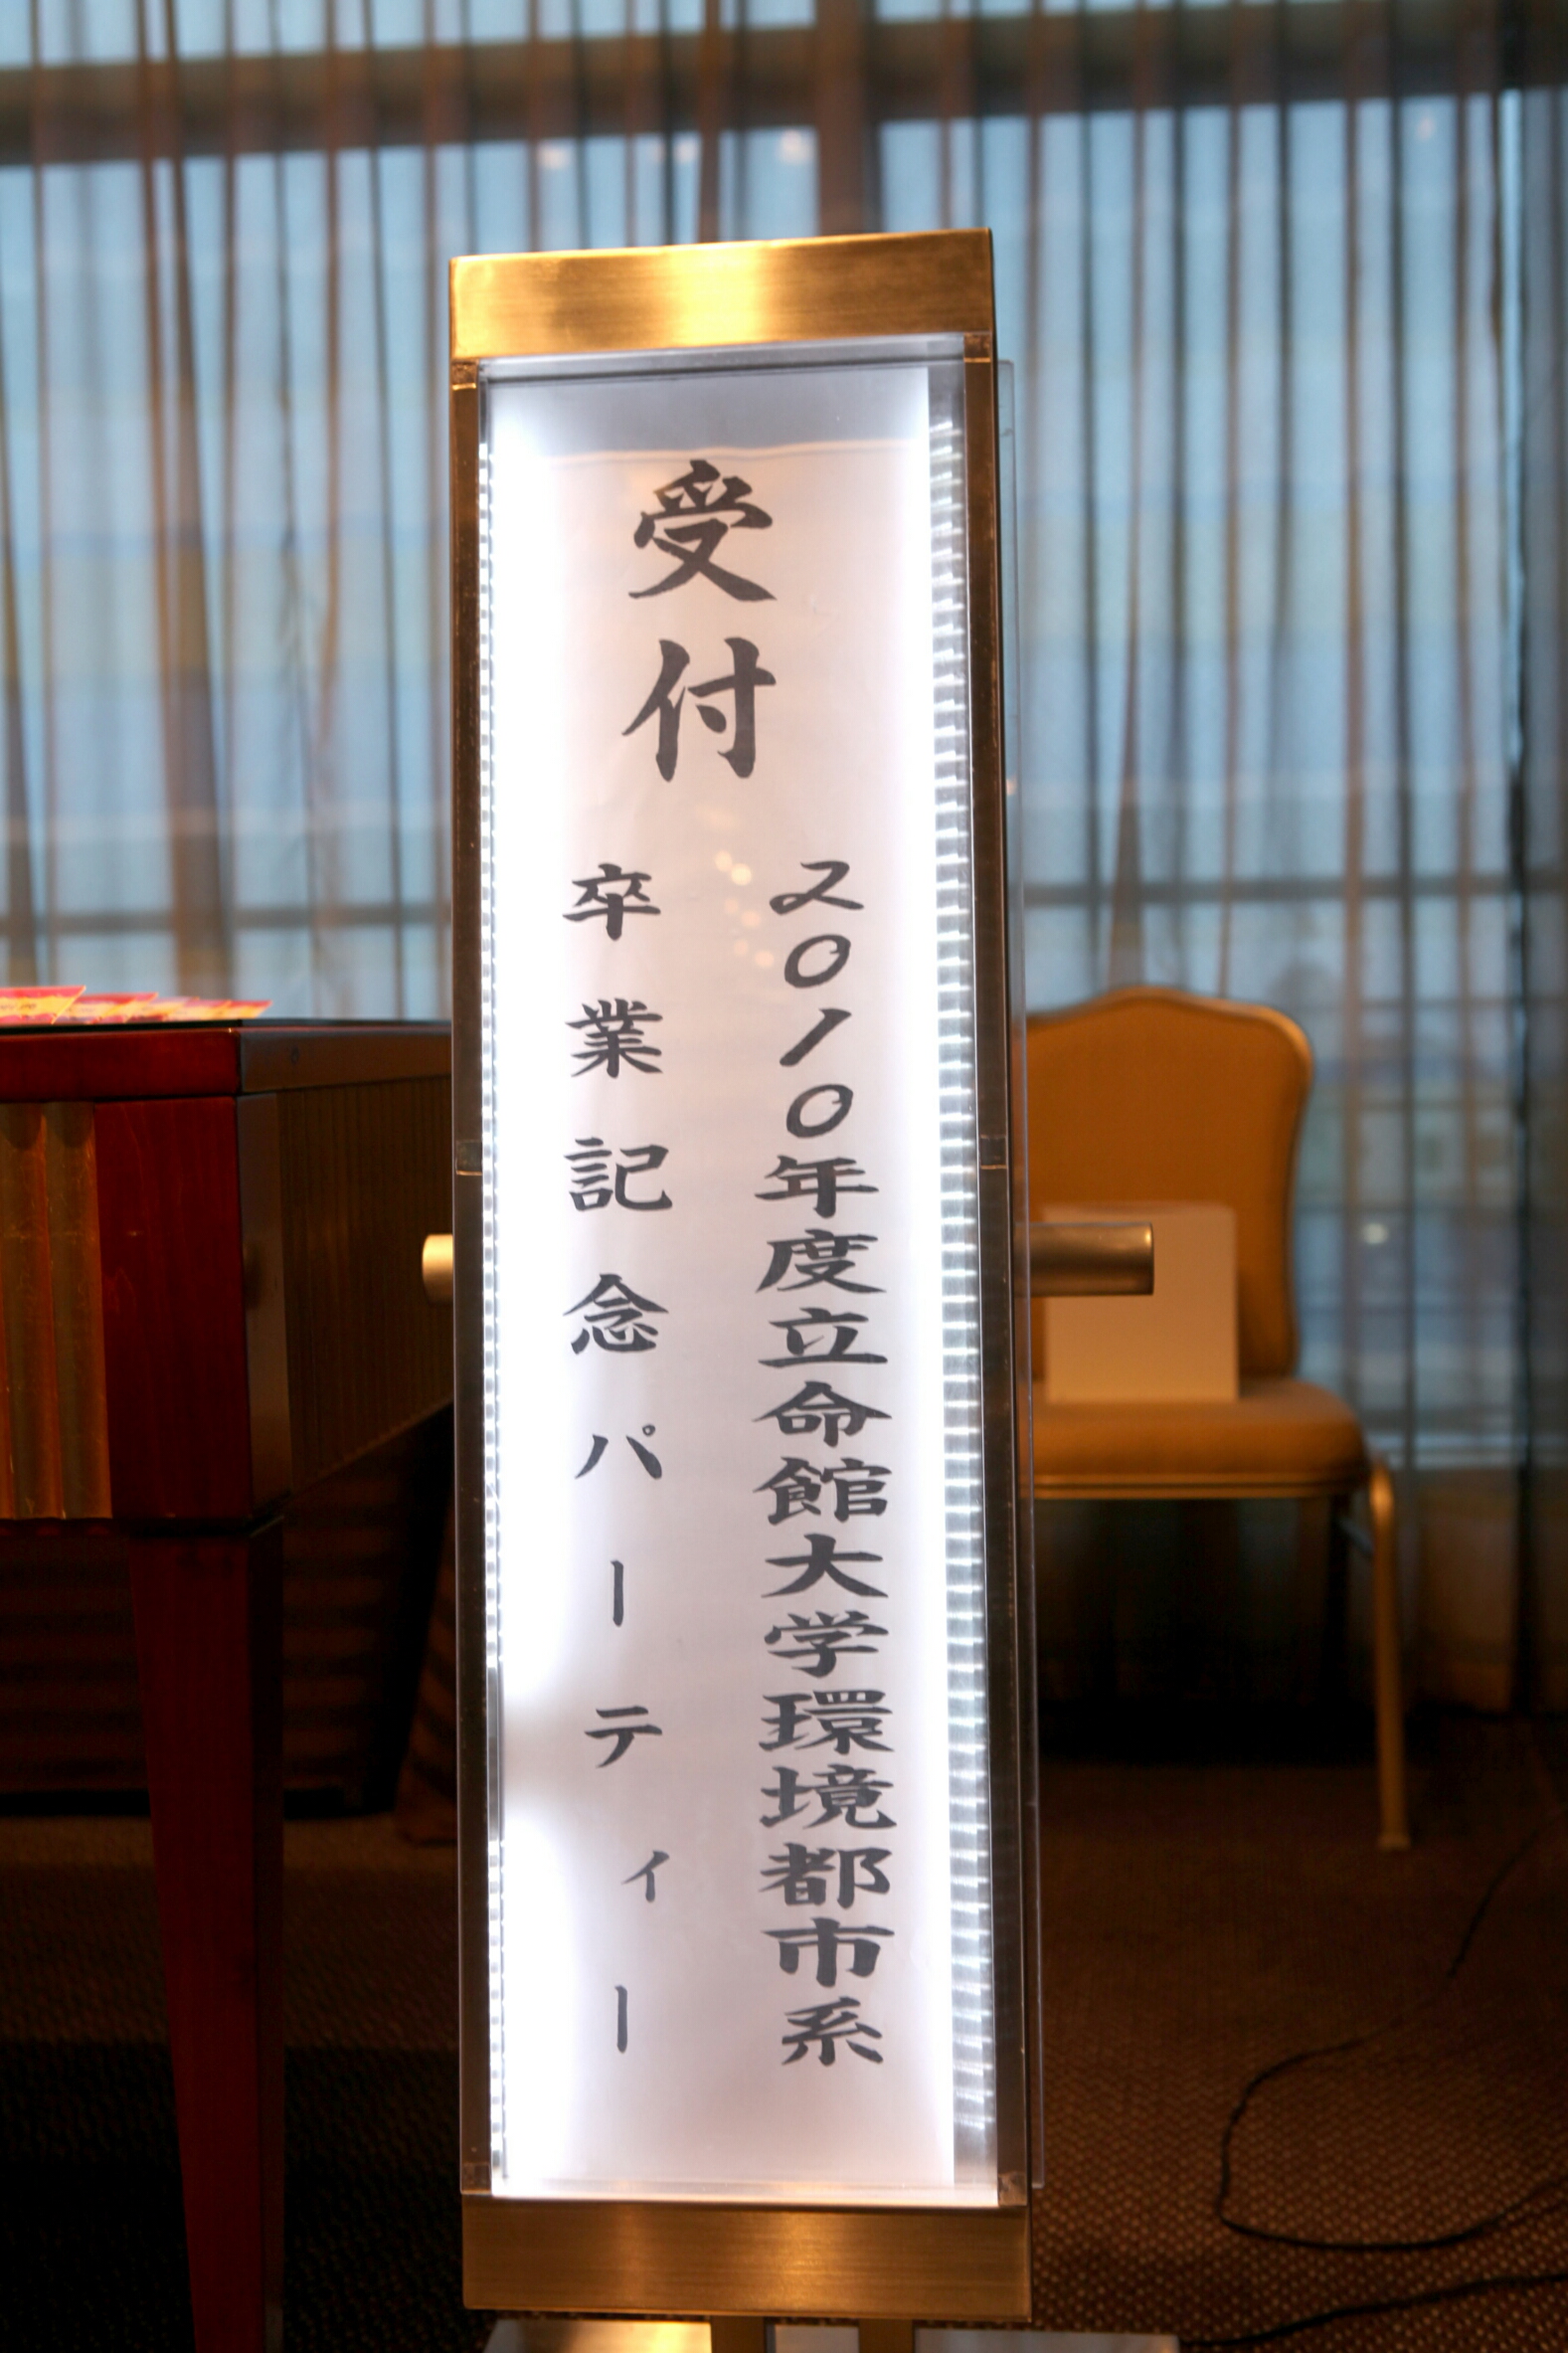 受付
2010年度立命館大学環境都市系
卒業記念パーティー